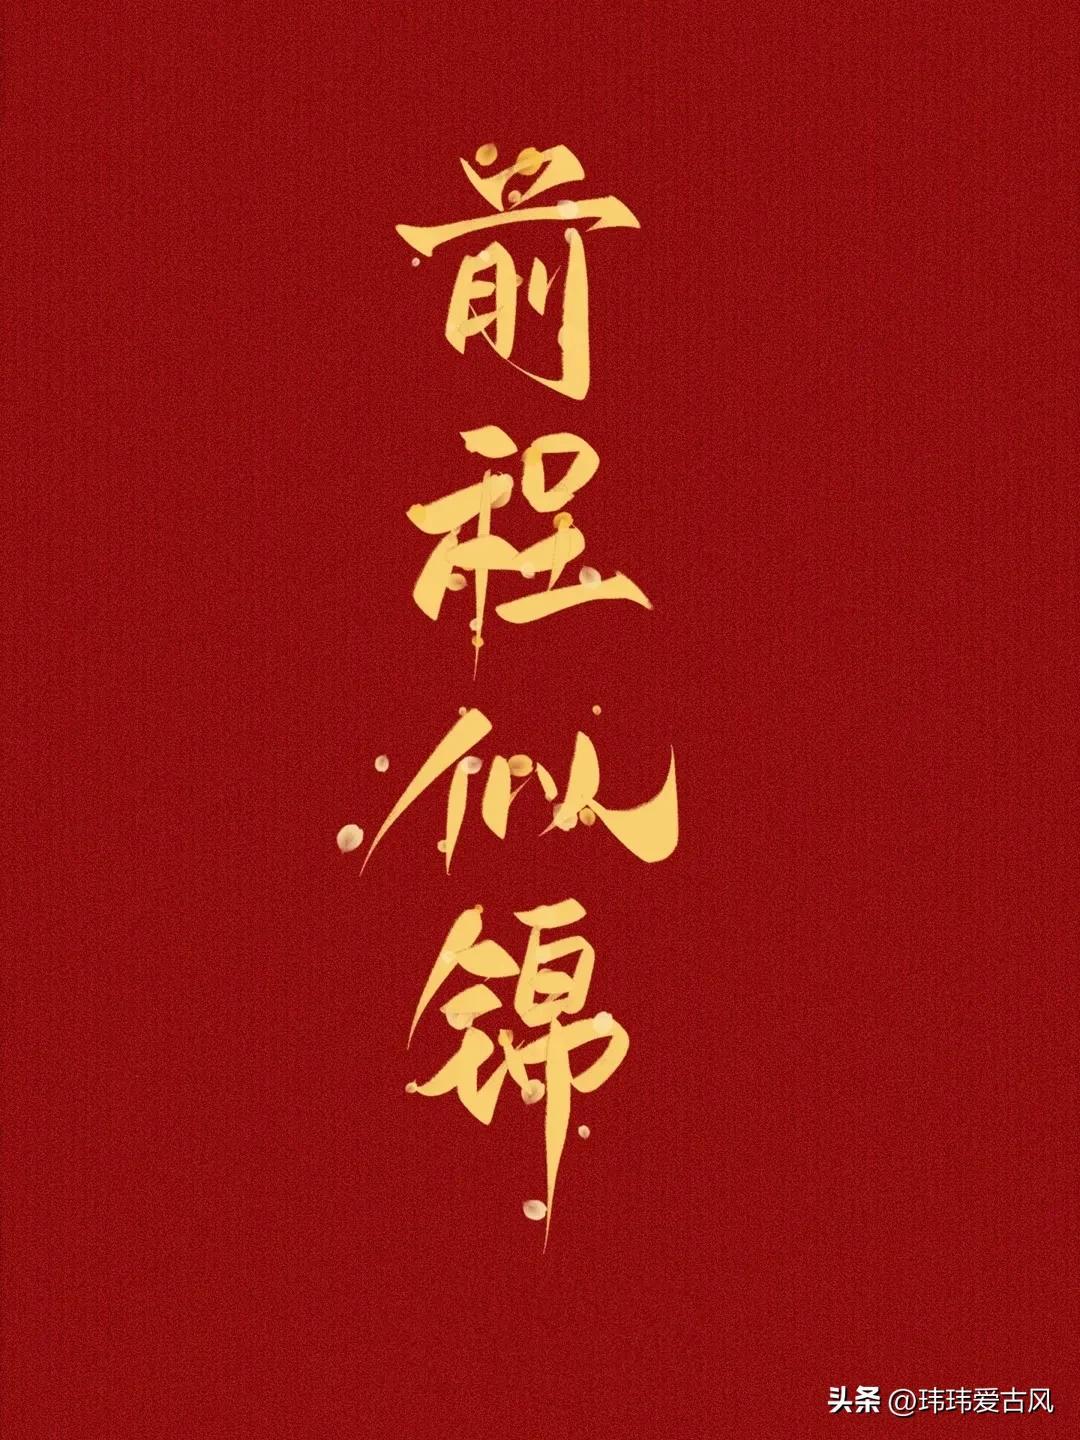 前程似锦
头条 @玮玮爱古风